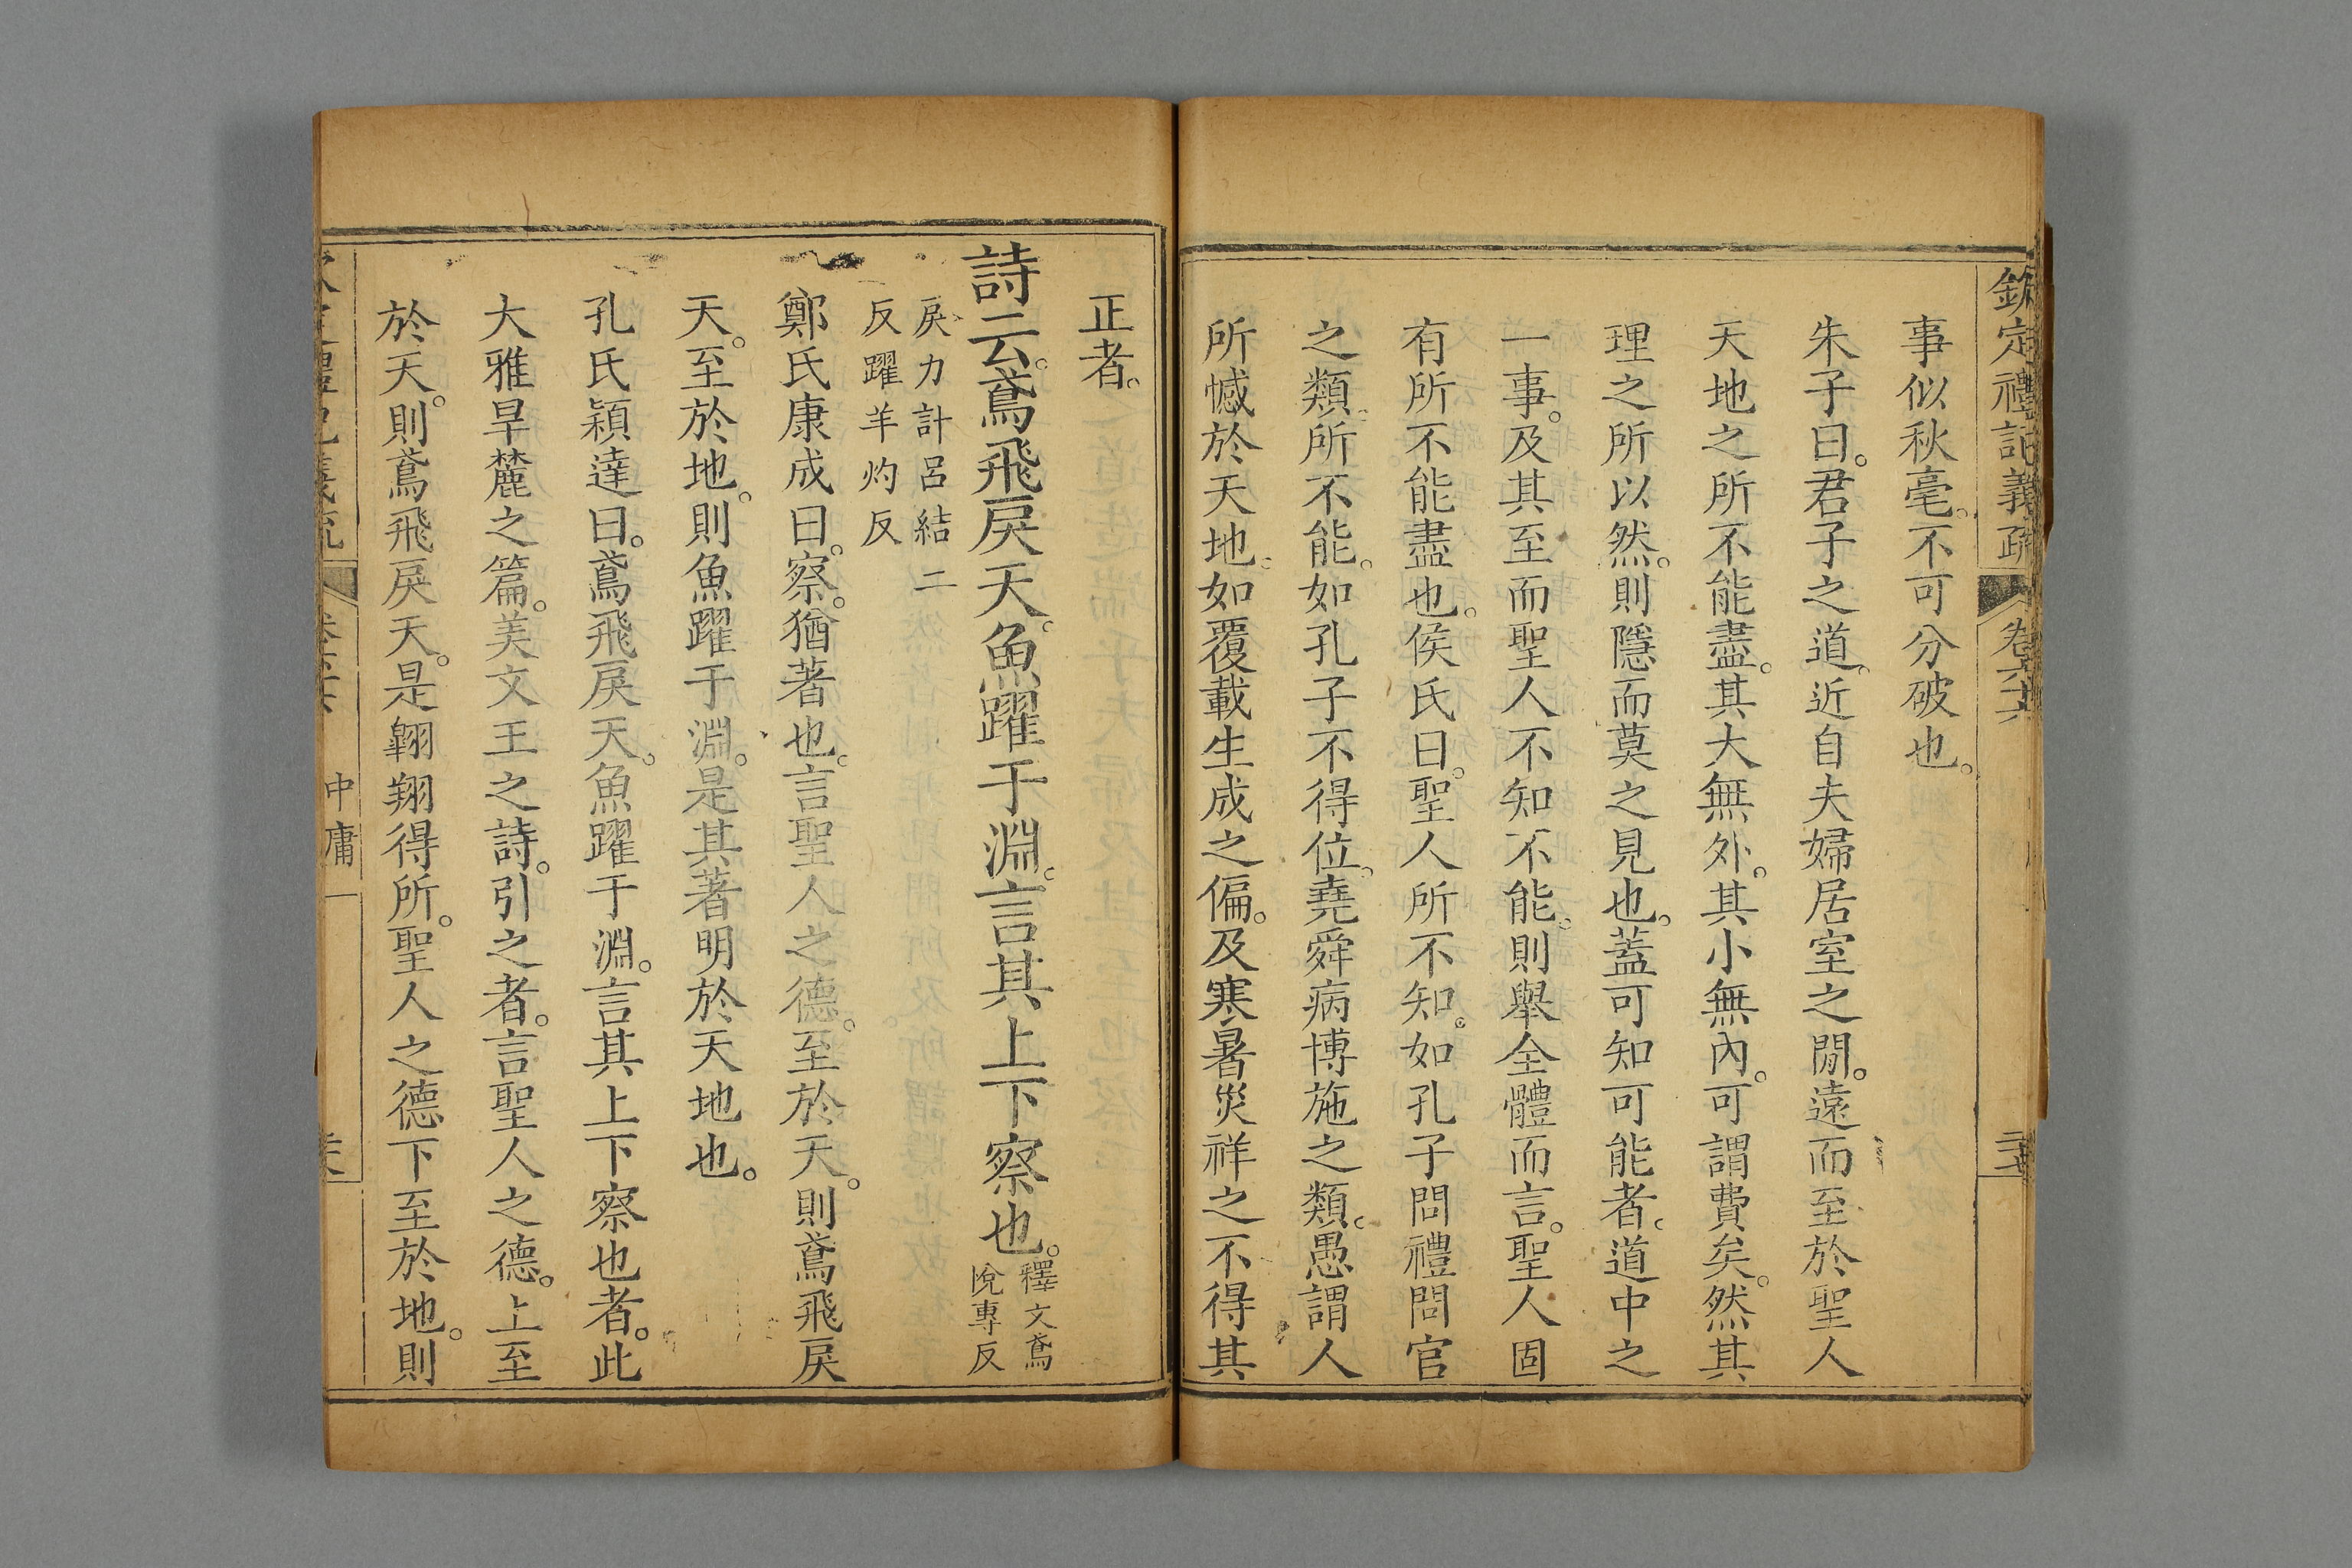 欽定禮記義疏 卷六十六
事似秋毫。不可分破也。
朱子曰。君子之道。近自夫婦居室之閒。遠而至於聖人
天地之所不能盡。其大無外。其小無內。可謂費矣。然其
理之所以然。則隱而莫之見也。蓋可知可能者。道中之
一事。及其至而聖人不知不能。則舉全體而言。聖人固
有所不能盡也。侯氏曰。聖人所不知。如孔子問禮問官
之類。所不能。如孔子不得位。堯舜病博施之類。愚謂人
所憾於天地。如覆載生成之偏。及寒暑災祥之不得其
正者。
詩云。鳶飛戾天。魚躍于淵。言其上下察也。釋文鳶
悅專反
戾力計呂結二
反躍羊灼反
鄭氏康成曰。察。猶著也。言聖人之德。至於天。則鳶飛戾
天。至於地。則魚躍于淵。是其著明於天地也。
孔氏穎達曰。鳶飛戾天。魚躍于淵。言其上下察也者。此
大雅旱麓之篇。美文王之詩。引之者。言聖人之德。上至
於天。則鳶飛戾天。是翱翔得所。聖人之德下至於地。則
中庸